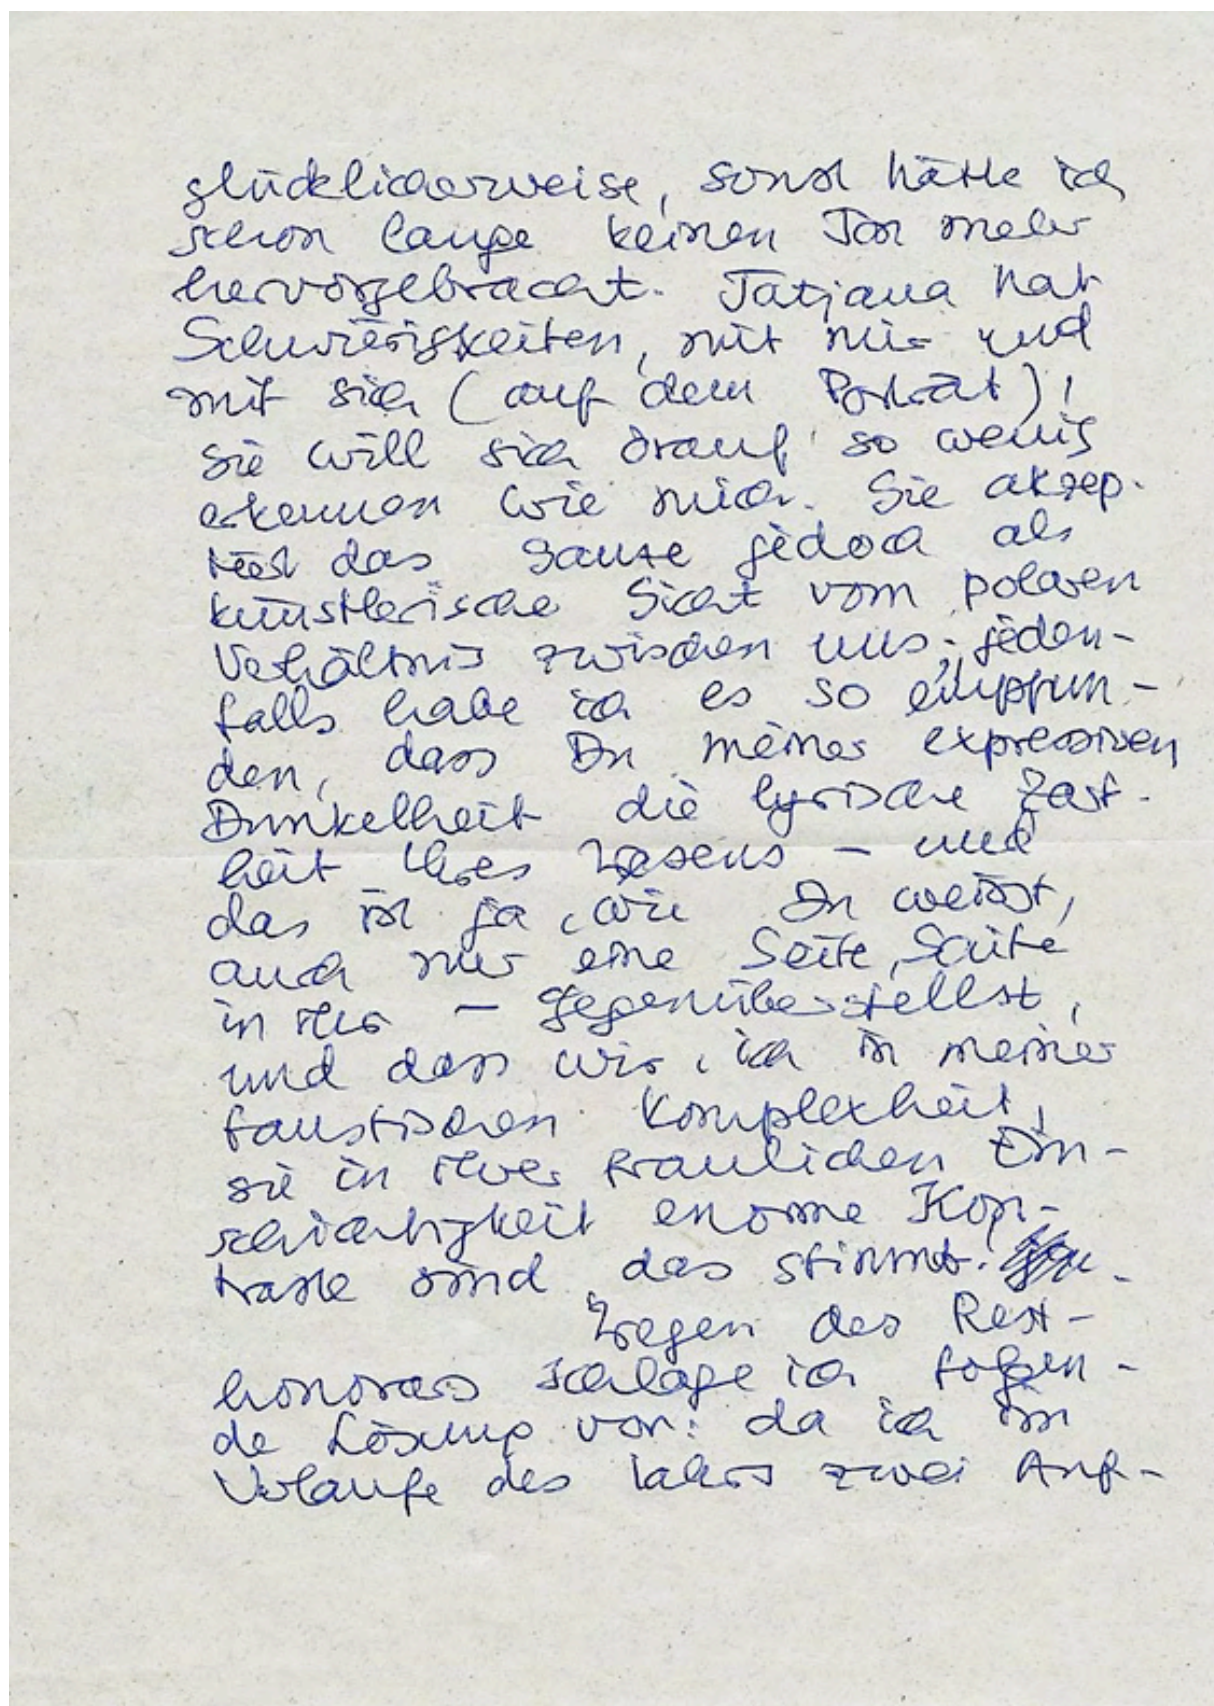 glücklicherweise, sonst hätte ich
schon lange keinen Ton mehr
hervorgebracht. Tatjana hat
Schwierigkeiten, mit mir und
mit sich (auf dem Porträt),
sie will sich drauf so wenig
erkennen wie mich. Sie akzep-
tiert das Ganze jedoch als
künstlerische Sicht vom polaren
Verhältnis zwischen uns; jeden-
falls habe ich es so empfun-
den, dass Du meiner expressiven
Dunkelheit die lyrische Zart-
heit ihres Wesens – und
das ist ja, wie Du weisst,
auch nur eine Seite, Saite
in ihr – gegenüberstellst,
und dass wir, ich in meiner
faustischen Komplexheit,
sie in ihrer fraulichen Ein-
schichtigkeit enorme Kon-
traste sind, das stimmt.
Wegen des Rest-
honorars schlage ich folgen-
de Lösung vor: da ich im
Verlaufe des Jahrs zwei Auf-